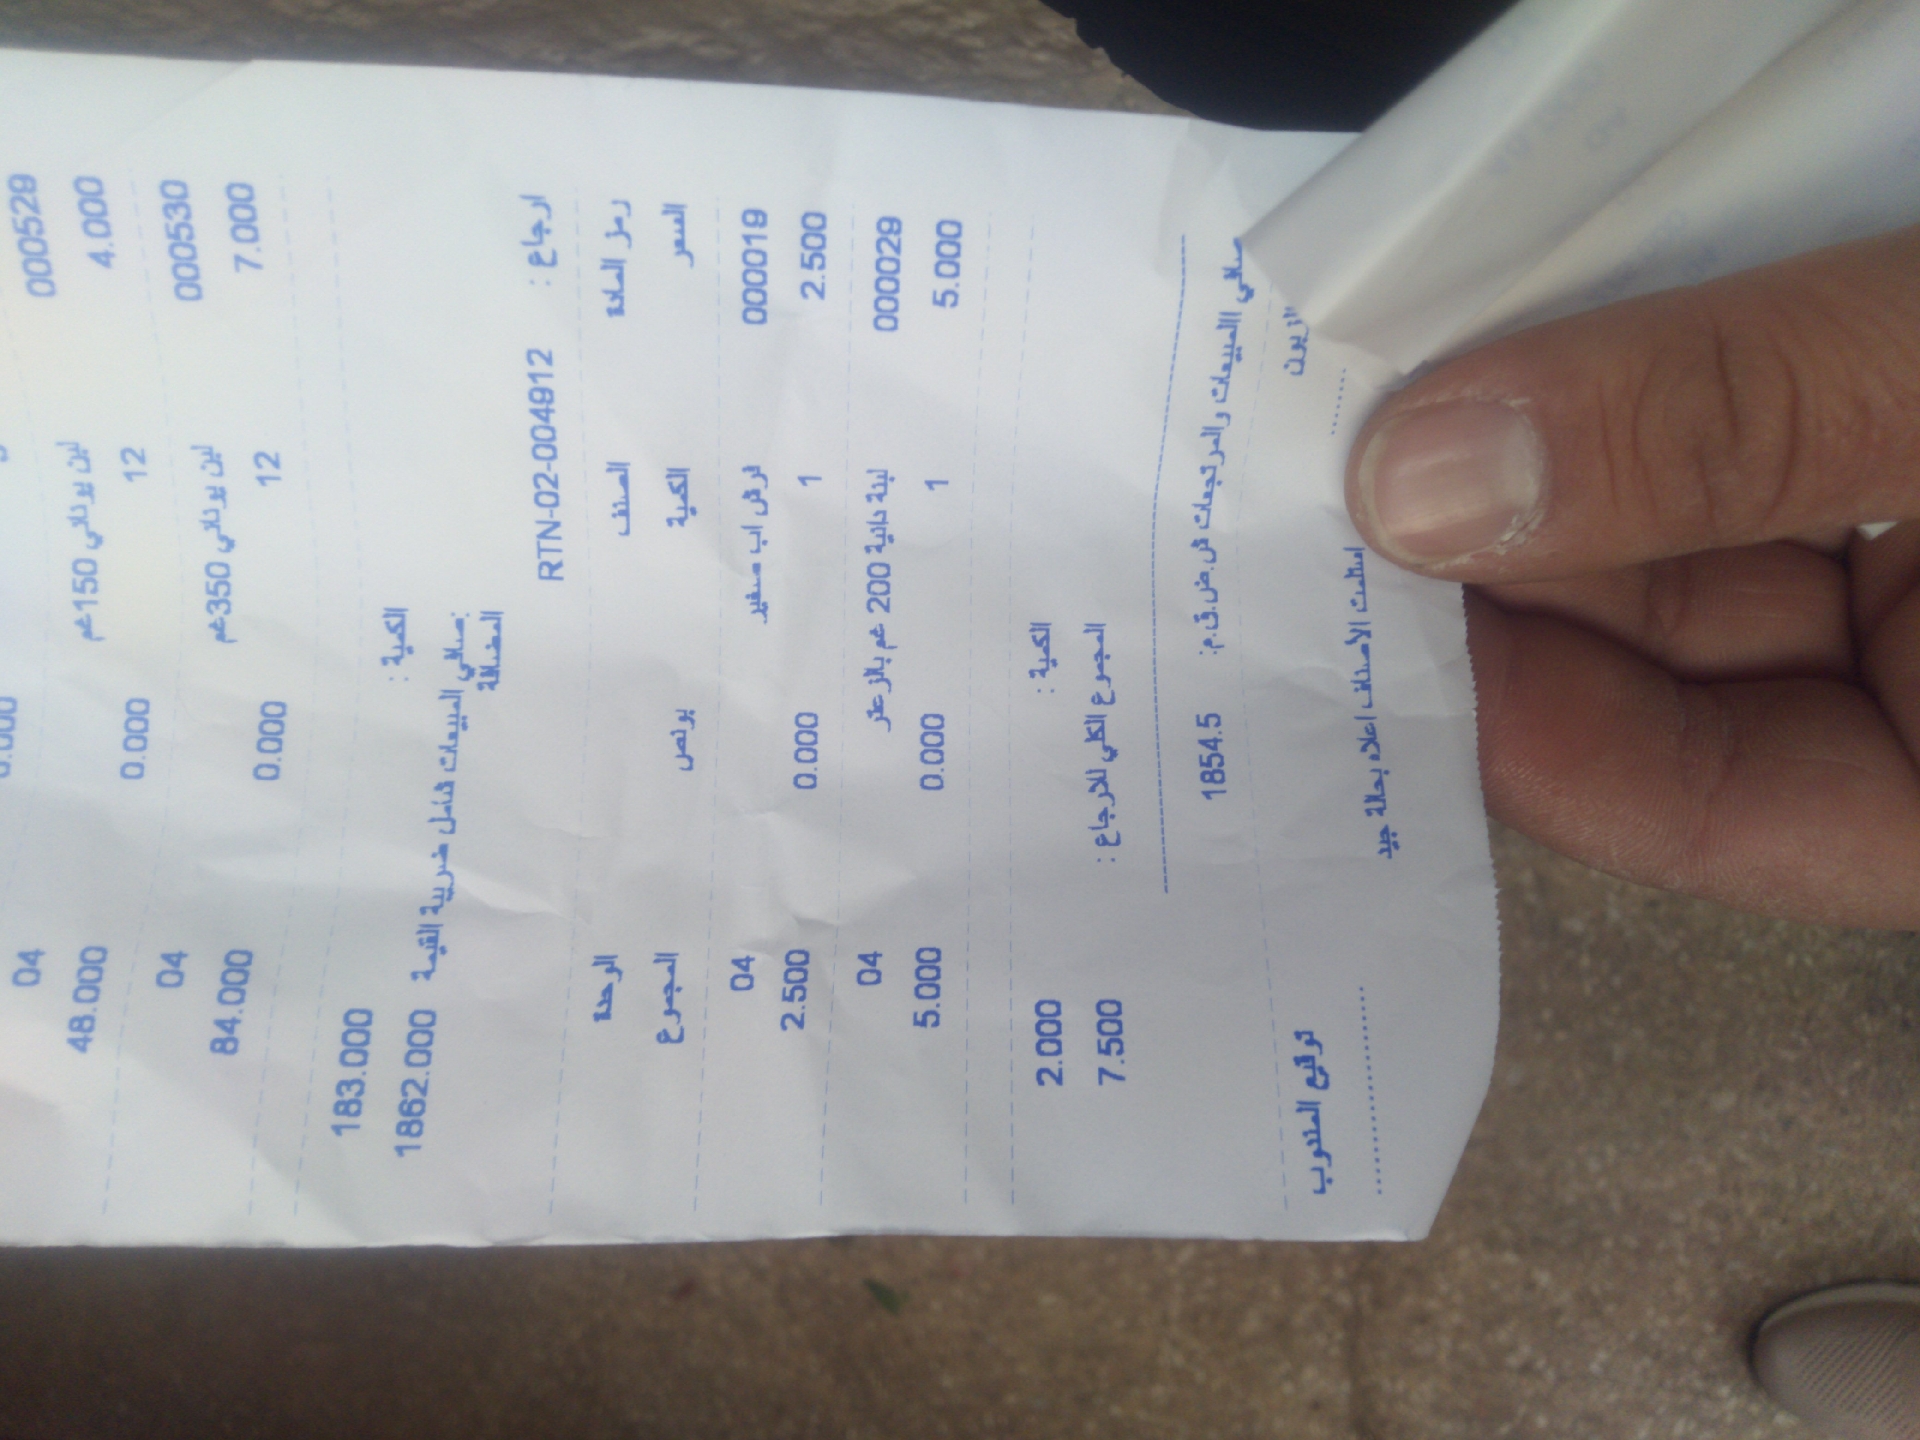 000529
04
لبن يوناني 150غم
4.000 12 0.000 48.000
000530
04
لبن يوناني 350غم
7.000 12 0.000 84.000
الكمية : 183.000
صافي المبيعات شامل ضريبة القيمة المضافة: 1862.000
ارجاع : RTN-02-004912
رمز المادة الصنف الوحدة
السعر الكمية بونص المجموع
000019 قرش اب صغير 04
2.500 1 0.000 2.500
000029 لبنة دانية 200 غم بالزعتر 04
5.000 1 0.000 5.000
الكمية : 2.000
المجموع الكلي للارجاع : 7.500
صافي المبيعات والمرتجعات ش.ض.ق.م: 1854.5
الزبون توقيع المندوب
استلمت الأصناف اعلاه بحالة جيد